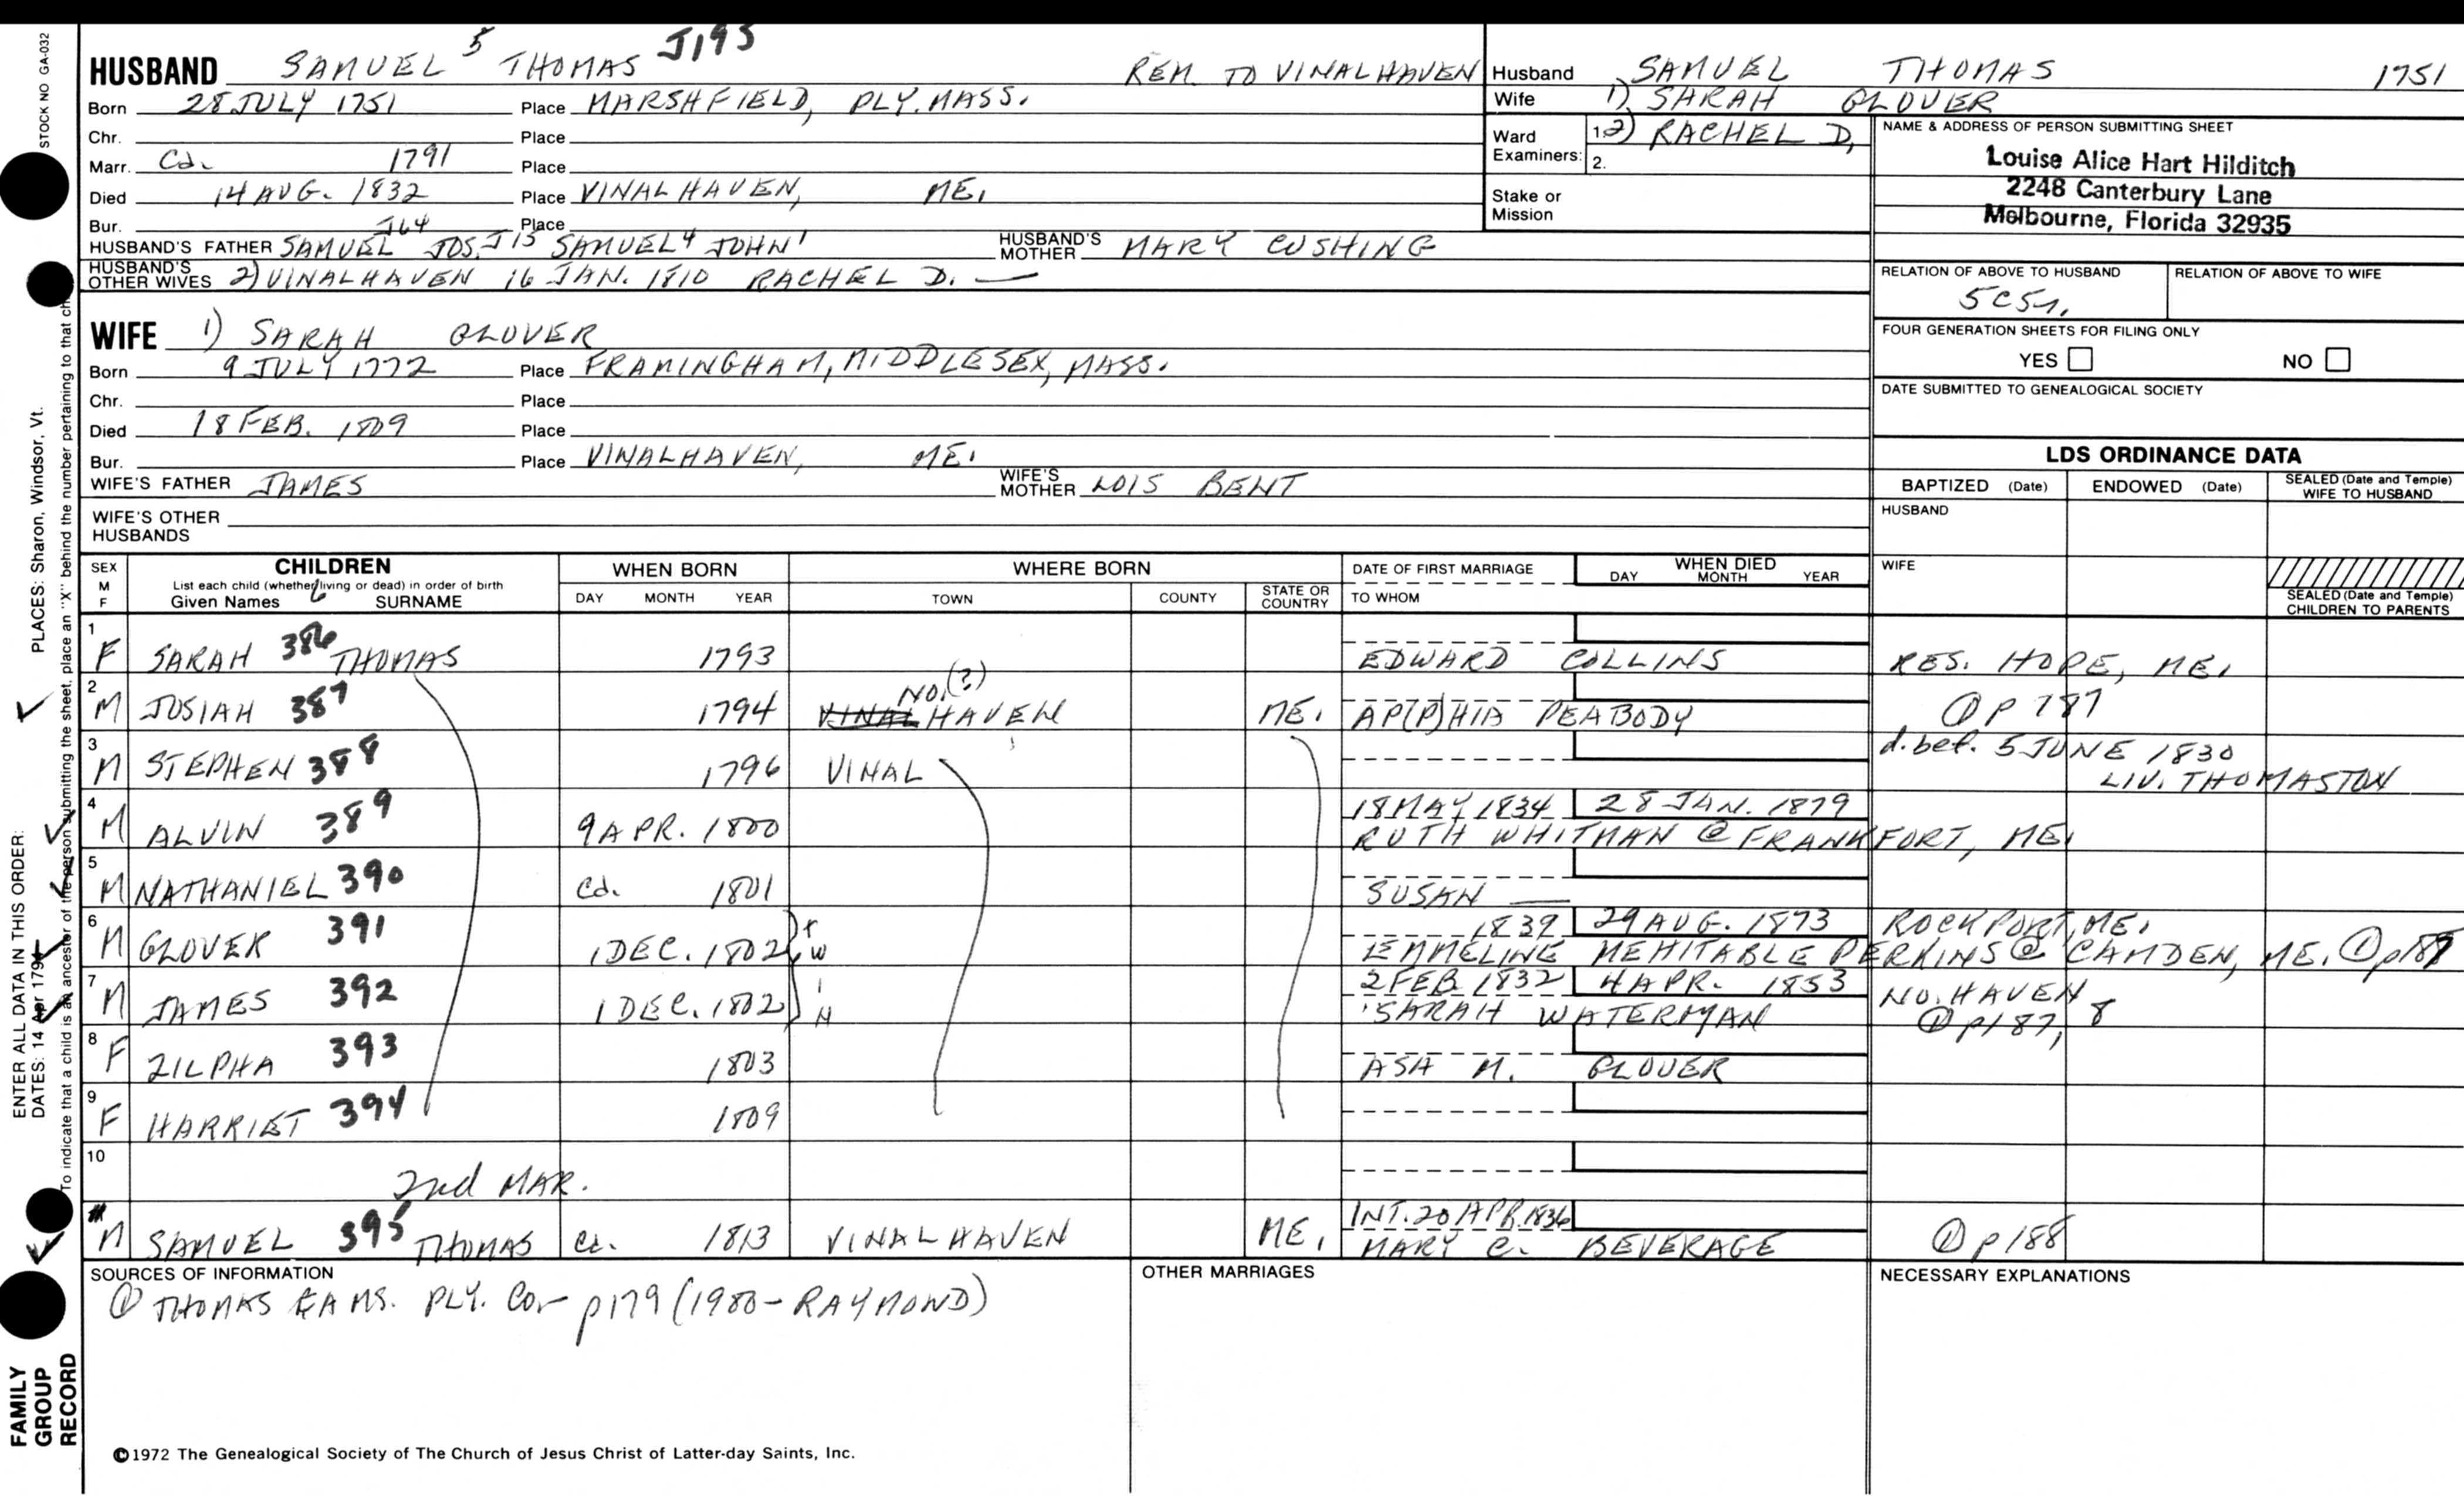 STOCK NO GA-032
HUSBAND SAMUEL 5 THOMAS J195 REM. TO VINALHAVEN
Born 28 JULY 1751 Place MARSHFIELD, PLY. MASS.
Chr. Place
Marr. Ca. 1791 Place
Died 14 AUG. 1832 Place VINALHAVEN, ME.
Bur. Place
J64
HUSBAND'S FATHER SAMUEL JOS. J15 SAMUEL 4 JOHN 1 HUSBAND'S MOTHER MARY CUSHING
HUSBAND'S OTHER WIVES 2) VINALHAVEN 16 JAN. 1810 RACHEL D. —
WIFE 1) SARAH GLOVER
Born 9 JULY 1772 Place FRAMINGHAM, MIDDLESEX, MASS.
Chr. Place
Died 18 FEB. 1809 Place
Bur. Place VINALHAVEN, ME.
WIFE'S FATHER JAMES WIFE'S MOTHER LOIS BENT
WIFE'S OTHER HUSBANDS
Husband SAMUEL THOMAS 1751
Wife 1) SARAH GLOVER
Ward Examiners: 1. 2) RACHEL D.
2.
Stake or Mission
NAME & ADDRESS OF PERSON SUBMITTING SHEET
Louise Alice Hart Hilditch
2248 Canterbury Lane
Melbourne, Florida 32935
RELATION OF ABOVE TO HUSBAND RELATION OF ABOVE TO WIFE
5C5r.
FOUR GENERATION SHEETS FOR FILING ONLY
YES NO
DATE SUBMITTED TO GENEALOGICAL SOCIETY
LDS ORDINANCE DATA
BAPTIZED (Date) ENDOWED (Date) SEALED (Date and Temple) WIFE TO HUSBAND
HUSBAND
WIFE
SEALED (Date and Temple) CHILDREN TO PARENTS
SEX M F CHILDREN WHEN BORN WHERE BORN DATE OF FIRST MARRIAGE WHEN DIED
List each child (whether living or dead) in order of birth
Given Names 6 SURNAME DAY MONTH YEAR TOWN COUNTY STATE OR COUNTRY TO WHOM DAY MONTH YEAR
1 F SARAH 386 THOMAS 1793 EDWARD COLLINS RES. HOPE, ME.
2 M JOSIAH 387 1794 VINAL NO.(?) HAVEN ME. AP(P)HIA PEABODY ① P 187
3 M STEPHEN 388 1796 VINAL d. bef. 5 JUNE 1830
LIV. THOMASTON
4 M ALVIN 389 9 APR. 1800 18 MAY 1834 28 JAN. 1879
RUTH WHITMAN @ FRANKFORT, ME.
5 M NATHANIEL 390 Ca. 1801 SUSAN —
6 M GLOVER 391 1 DEC. 1802 TWIN 1839 29 AUG. 1873 ROCKPORT, ME.
EMMELINE MEHITABLE PERKINS @ CAMDEN, ME. ① p187
7 M JAMES 392 1 DEC. 1802 2 FEB 1832 4 APR. 1853 NO. HAVEN
SARAH WATERMAN ① p187, 8
8 F ZILPHA 393 1803 ASA M. GLOVER
9 F HARRIET 394 1809
10
2nd MAR.
M SAMUEL 395 THOMAS Ca. 1813 VINALHAVEN ME. INT. 20 APR. 1836
MARY C. BEVERAGE ① p188
SOURCES OF INFORMATION OTHER MARRIAGES NECESSARY EXPLANATIONS
① THOMAS FAMS. PLY. Co. p179 (1980 - RAYMOND)
©1972 The Genealogical Society of The Church of Jesus Christ of Latter-day Saints, Inc.
ENTER ALL DATA IN THIS ORDER: PLACES: Sharon, Windsor, Vt.
DATES: 14 Apr 1794
To indicate that a child is an ancestor of the person submitting the sheet, place an "X" behind the number pertaining to that
FAMILY GROUP RECORD